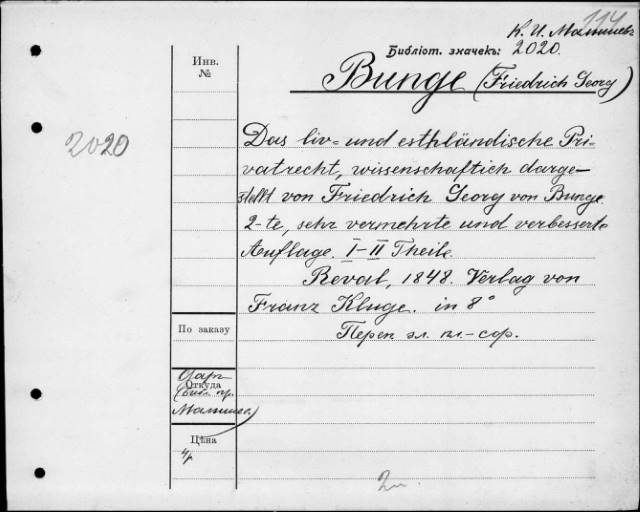 114
К. И. Малышев
Библіот. значекъ: 2020.
Инв.
№
Bunge (Friedrich Georg)
2020
Das liv- und esthländische Pri-
vatrecht, wissenschaftich darge-
stellt von Friedrich Georg von Bunge.
2-te, sehr vermehrte und verbesserte
Auflage. I-II Theile.
Reval, 1848. Verlag von
Franz Kluge. in 8°
Переп. эл. пл.-сор.
По заказу
Даръ
Откуда
(библ. пр.
Малышева)
Цѣна
4р
2т.